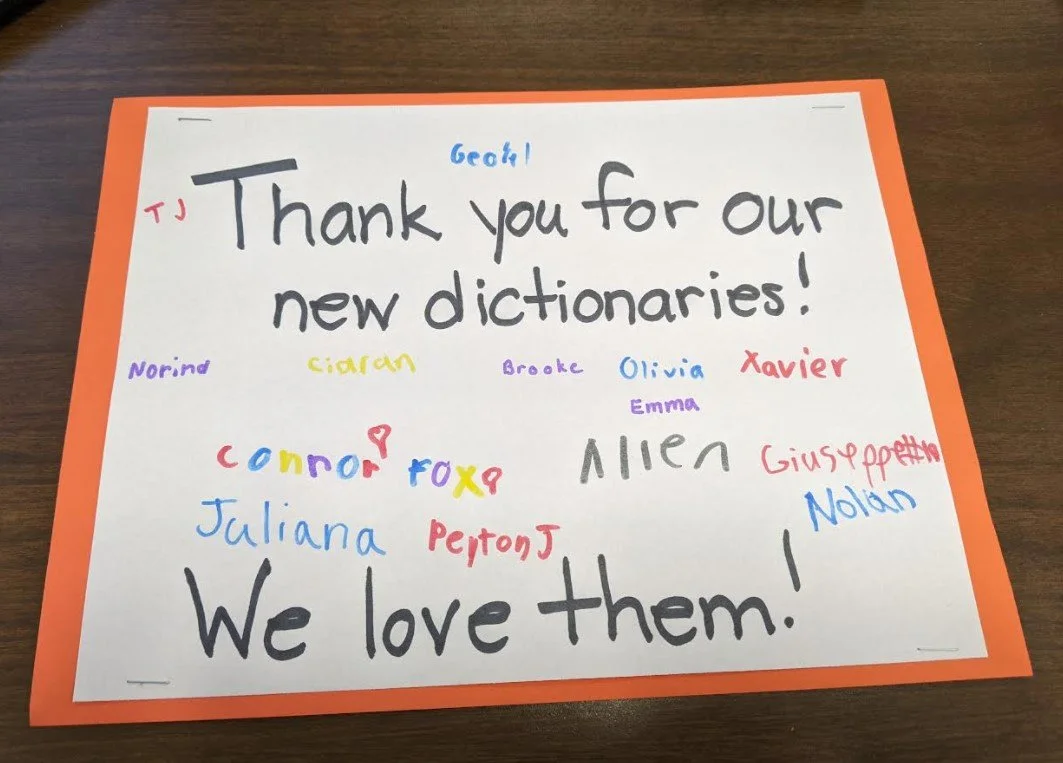 TJ
Thank you for our
new dictionaries!
Norind Ciaran Brooke Olivia Xavier
Emma
Connor Fox Allen
Nolan
Juliana Peyton J
We love them!